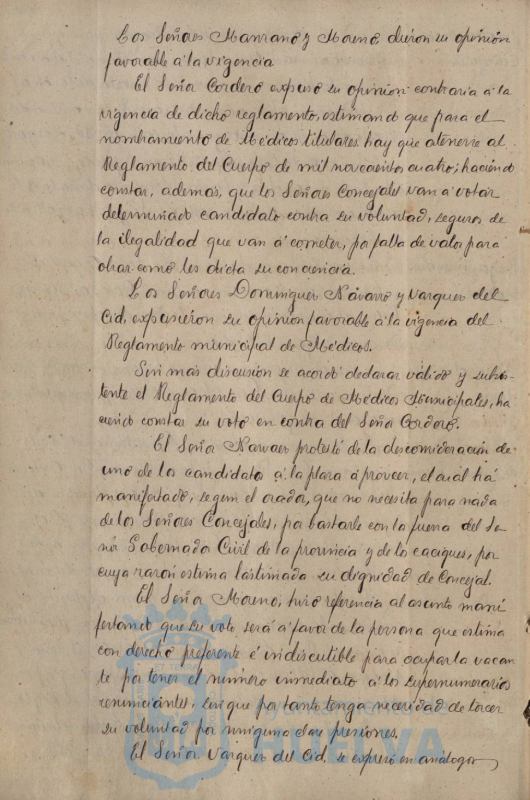 Los Señores Manzano y Moreno dieron su opinión
favorable á la vigencia
El Señor Cordero expuso su opinión contraria á la
vigencia de dicho reglamento, estimando que para el
nombramiento de Médicos titulares hay que atenerse al
Reglamento del Cuerpo de mil novecientos cuatro; haciendo
constar, además, que los Señores Concejales van á votar
determinado candidato contra su voluntad, seguros de
la ilegalidad que van á cometer, por falta de valor para
obrar como les dicta su conciencia.
Los Señores Dominguez Návarro y Vazquez del
Cid, expusieron su opinión favorable á la vigencia del
Reglamento municipal de Médicos.
Sin más discusión se acordó declarar válido y subsis-
tente el Reglamento del Cuerpo de Médicos Municipales, ha
ciendo constar su voto en contra del Señor Cordero.
El Señor Narvaez protestó de la desconsideración de
uno de los candidatos á la plaza á proveer, el cual há
manifestado, segun el orador, que no necesita para nada
de los Señores Concejales, por bastarle con la fuerza del Se
ñor Gobernador Civil de la provincia y de los caciques, por
cuya razón estima lastimada su dignidad de Concejal.
El Señor Moreno, hizo referencia al asunto mani
festando que su voto será á favor de la persona que estima
con derecho preferente é indiscutible para ocupar la vacan
te por tener el número inmediato á los supernumerarios
renunciantes, sin que por tanto tenga necesidad de torcer
su voluntad por ninguna clase presiones.
El Señor Vazquez del Cid, se expresó en análogos
HUELVA